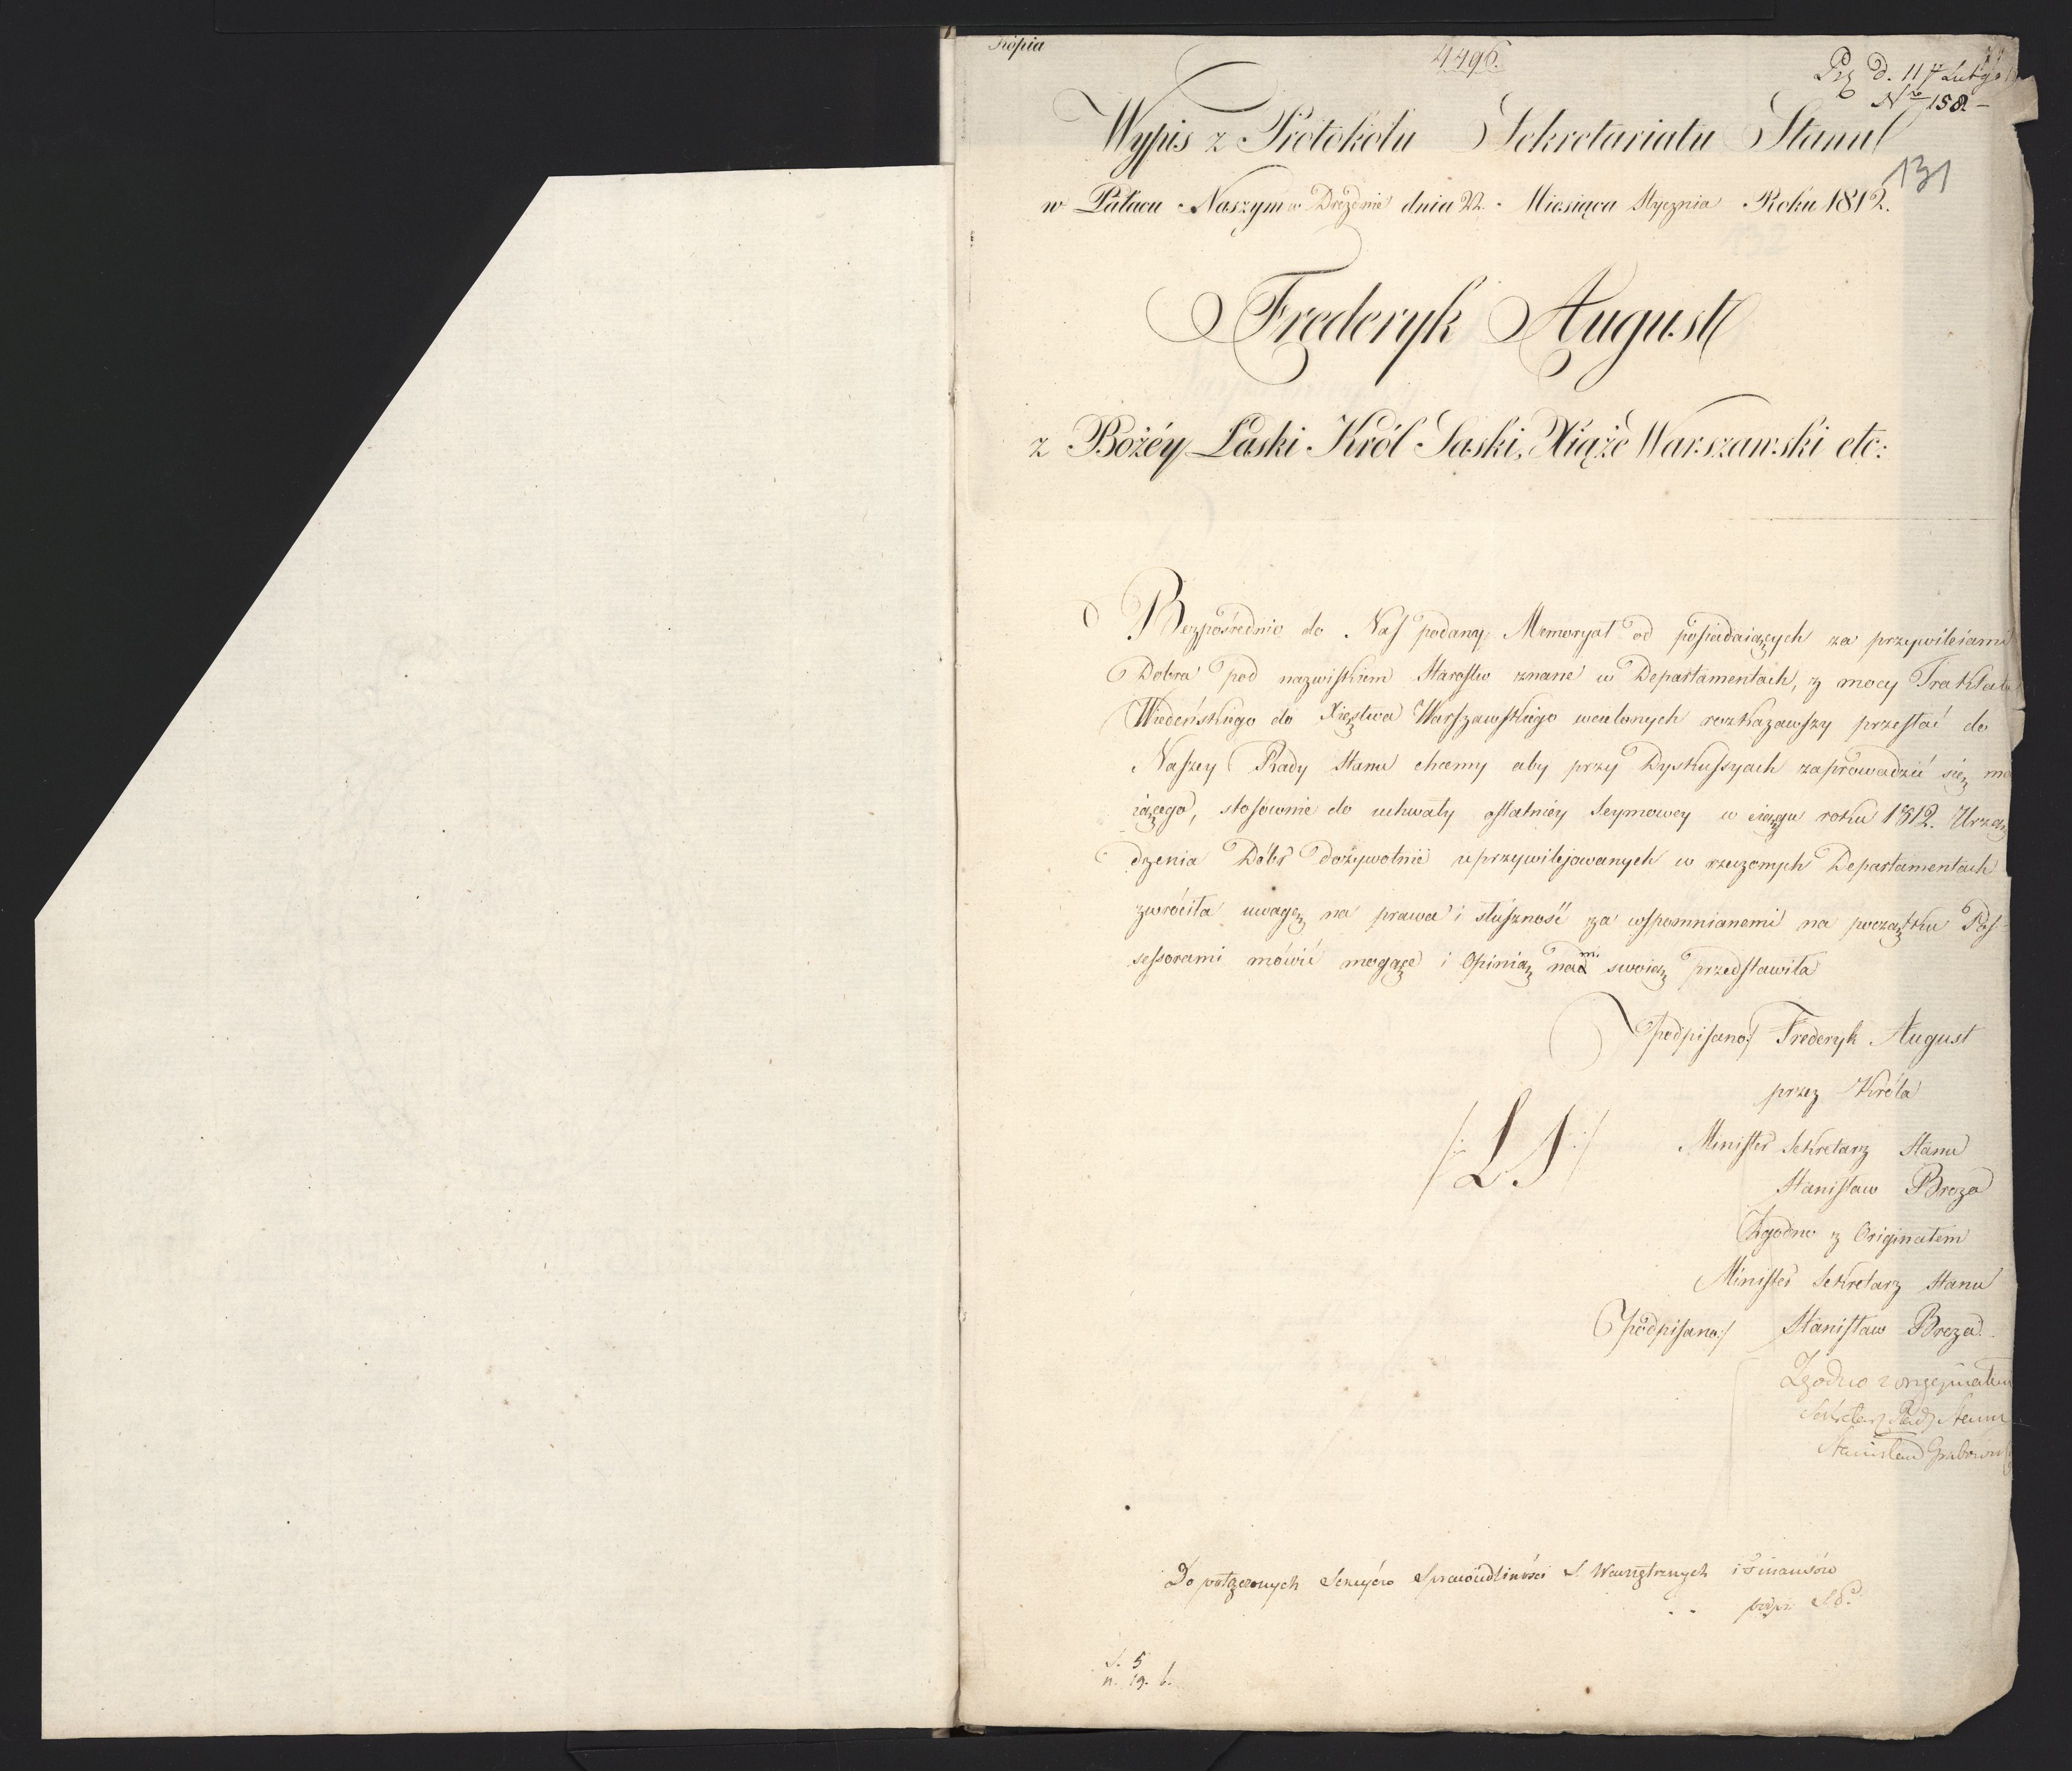 Kopia
4496.
Prz d. 11 Lutego
No 158.
Wypis z Protokołu Sekretariatu Stanu
131
w Pałacu Naszym w Dreźnie dnia 22. Miesiąca Stycznia Roku 1812.
Frederyk August
z Bożéy Łaski Król Saski, Xiąże Warszawski etc:
Bezpośrednio do Nas podany Memoryał od posiadaiących za przywileiami
Dobra pod nazwiskiem Starostw znane w Departamentach, z mocy Traktatu
Wiedeńskiego do Xięztwa Warszawskiego wcielonych rozkazawszy przesłać do
Naszey Rady Stanu chcemy aby przy Dyskussyach zaprowadzić się ma
iącego, stosownie do uchwały ostatniéy Seymowey w ciągu roku 1812. Urzą
dzenia Dóbr dożywotnie uprzywilejowanych w rzeczonych Departamentach
zwróciła uwagę na prawa i słuszność za wspomnianemi na początku Pos-
sessorami mówić mogące i Opinią nad nimi swoią przedstawiła
podpisano/ Frederyk August
przez Króla
/:LS:/
Minister Sekretarz Stanu
Stanisław Breza
Zgodno z Originałem
Minister Sekretarz Stanu
podpisano:/ Stanisław Breza.
Zgodno z orygjnałem
Sekretarz Rady Stanu
Stanisław Grabowski
Do połączonych Sekcyów Sprawiedliwości S. Wewnętrznych i Finansów
podpi: S.P.
S. 5
n. 19. b.